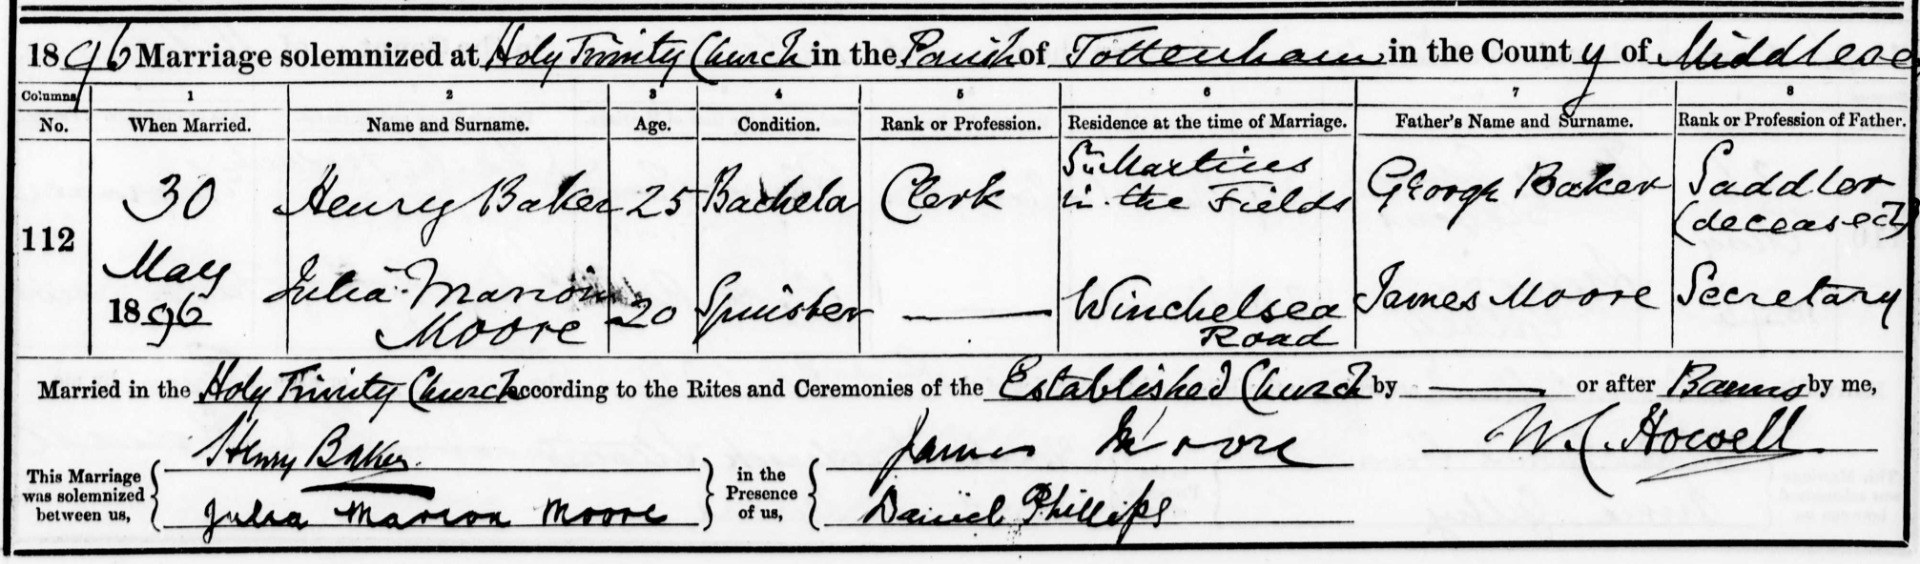 1896 Marriage solemnized at Holy Trinity Church in the Parish of Tottenham in the County of Middlesex
Columns 1 2 3 4 5 6 7 8
No. When Married. Name and Surname. Age. Condition. Rank or Profession. Residence at the time of Marriage. Father's Name and Surname. Rank or Profession of Father.
112
30 May 1896
Henry Baker 25 Bachelor Clerk St Martins in the Fields George Baker Saddler (deceased)
Julia Marion Moore 20 Spinster — Winchelsea Road James Moore Secretary
Married in the Holy Trinity Church according to the Rites and Ceremonies of the Established Church by — or after Banns by me,
This Marriage was solemnized between us,
Henry Baker
Julia Marion Moore
in the Presence of us,
James Moore
Daniel Phillips
W. C. Howell